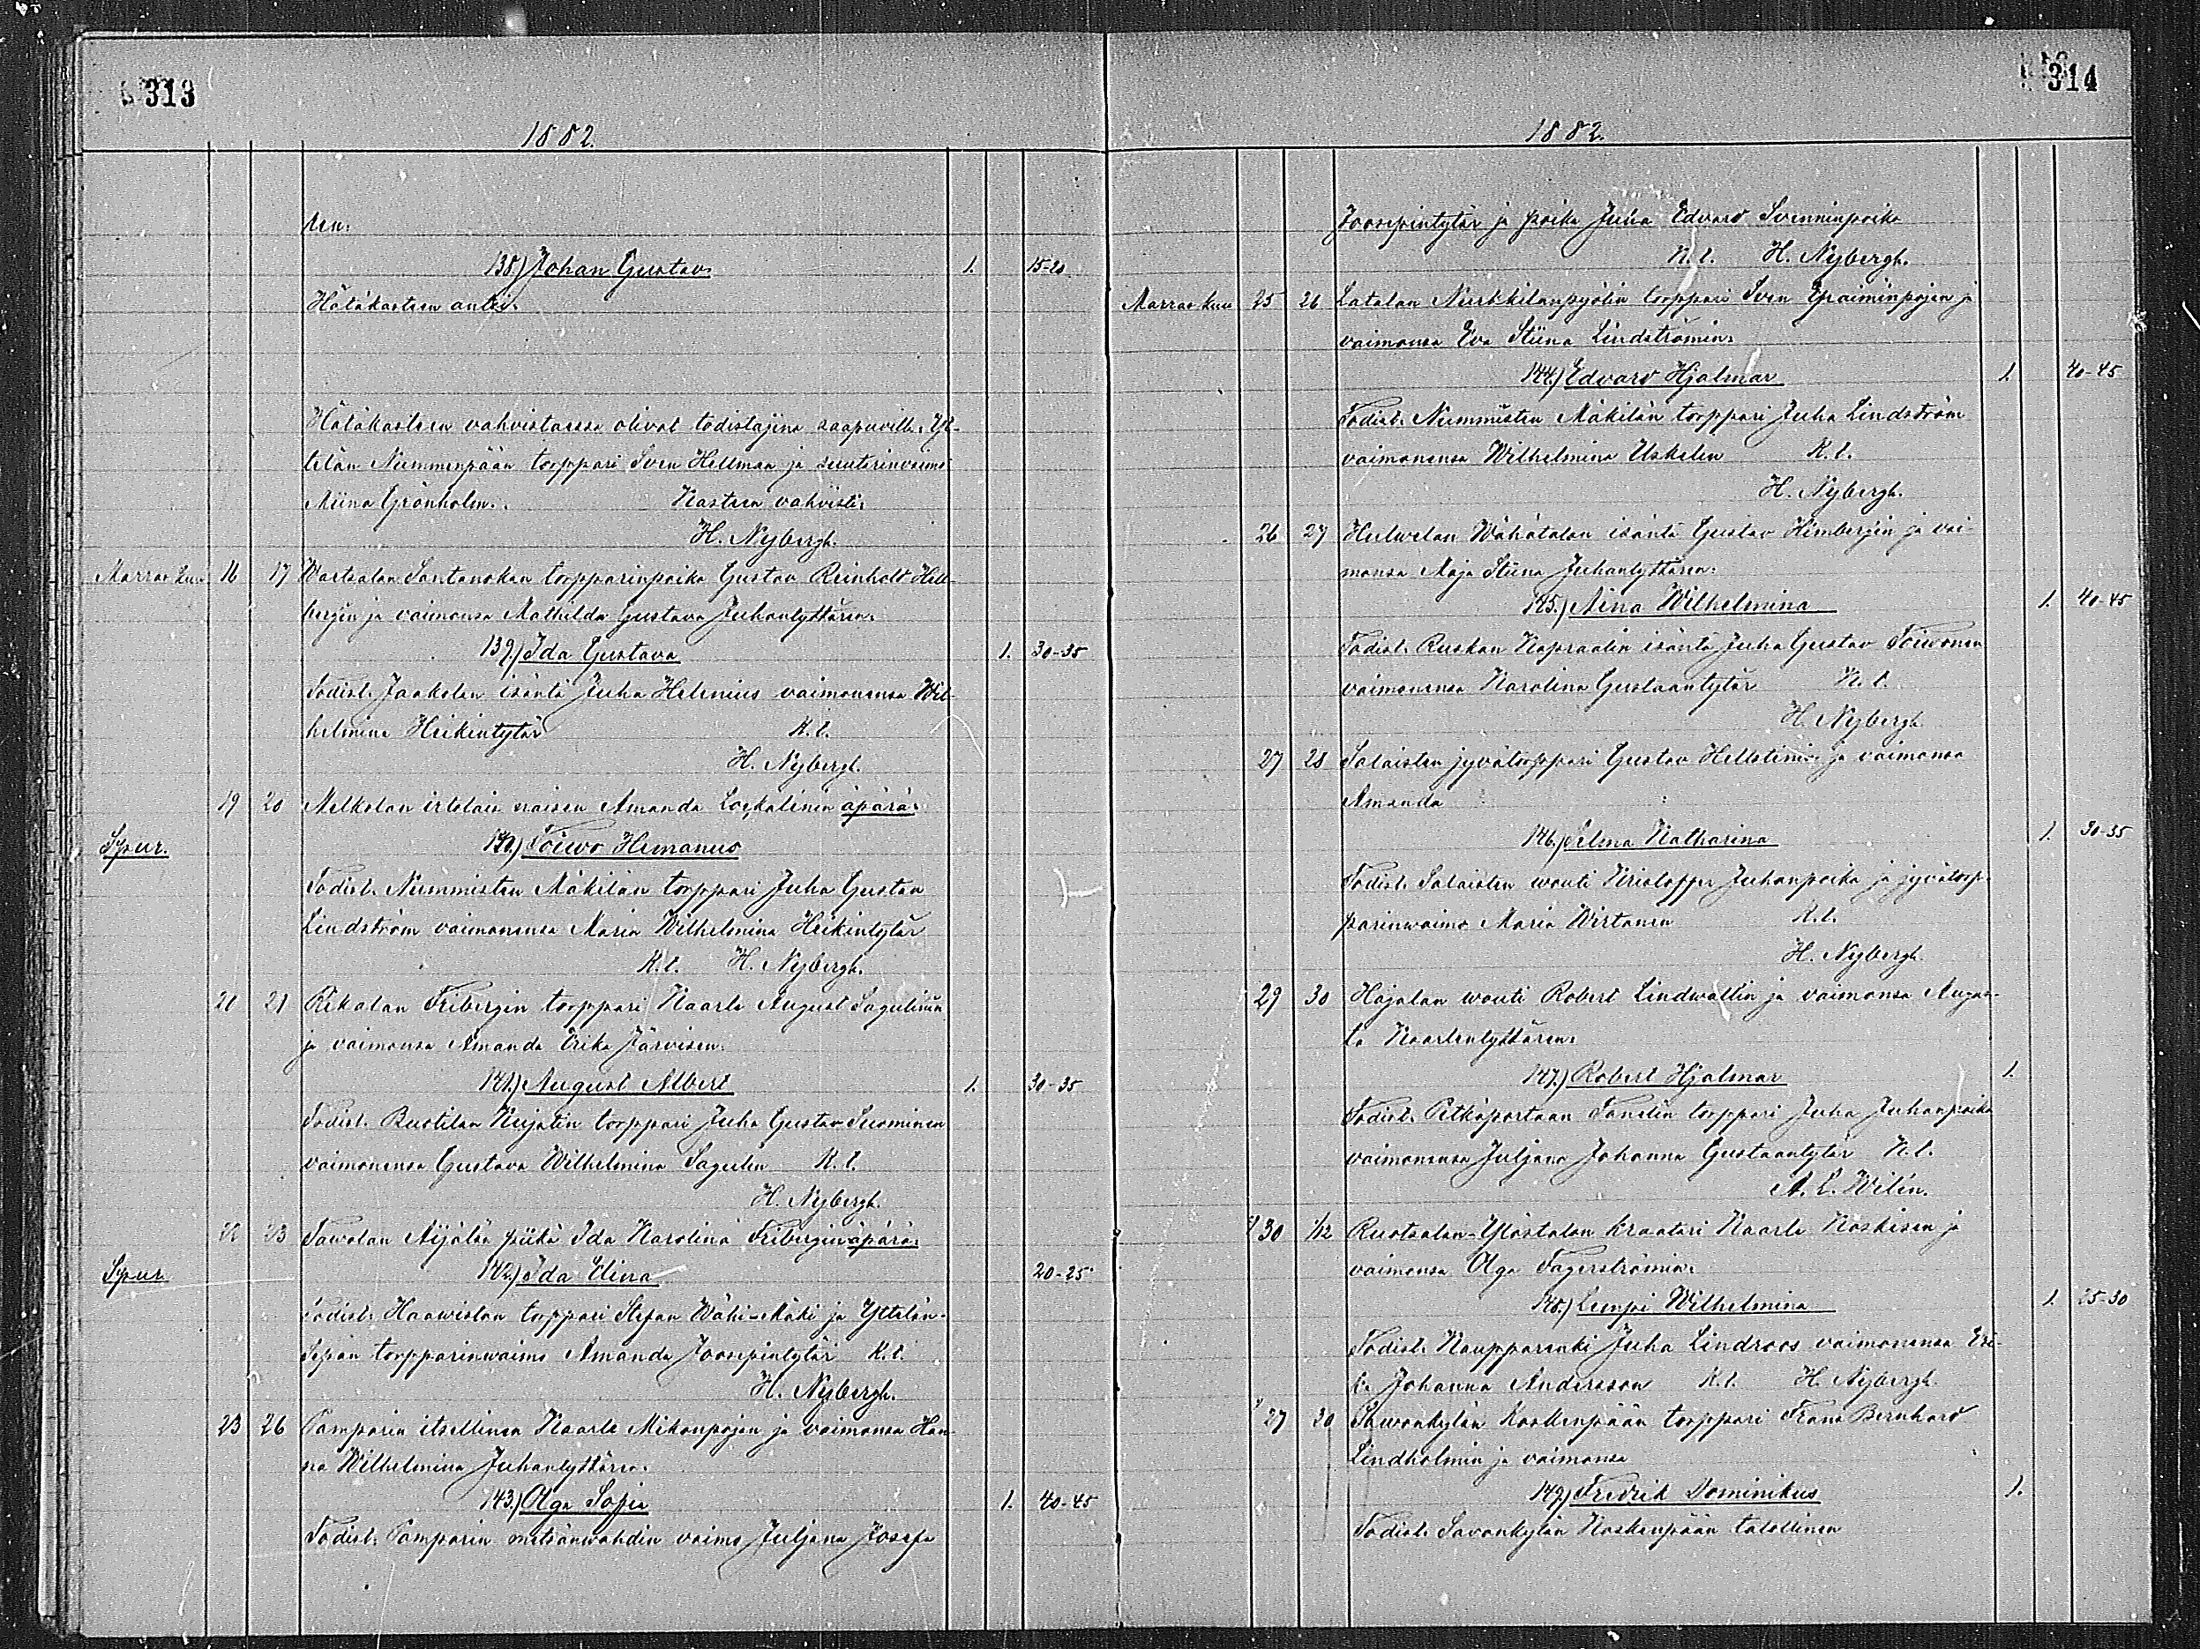 313
1882.
nen.
138.) Johan Gustav. 1. 15-20
Hätäkasteen antoi.
Hätäkasteen vahvistaessa olivat todistajina saapuvilla: Yt-
telän Nummenpään torppari Sven Hellman ja suutarinvaimo
Miina Grönholm. Kasteen vahvisti:
H. Nybergh.
Marras kuu 16 17 Wartsalan Santanokan torpparinpoika Gustav Reinhold Hell-
bergin ja vaimonsa Mathilda Gustava Juhantyttären:
139.) Ida Gustava 1. 30-35
Todist. Jaakolan isäntä Juha Helenius vaimonensa Wil-
helmina Heikintytär K. t.
H. Nybergh.
19 20 Melkolan irtolais naisen Amanda äpärä:
Spur. 140.) Toiwo Hemanus
Todist. Nummisten Mäkilän torppari Juha Gustav
Lindström vaimonensa Maria Wilhelmina Heikintytär
K. t. H. Nybergh.
21 Rekolan Fribergin torppari Kaarle August Sagulinin
ja vaimonsa Amanda Erika Järvisen:
141.) August Albert 1. 30-35
Todist. Ruotilan Kujalin torppari Juha Gustav Suominen
vaimonensa Gustava Wilhelmina Sagulin K. t.
H. Nybergh.
23 Sawolan Äijälän piika Ida Karolina Fribergin äpärä:
Spur. 142.) Ida Elina 20-25
Todist. Haawiston torppari Stefan Wähi-Mäki ja Yttelän-
Sepän torpparinwaimo Amanda Joosepintytär K. t.
H. Nybergh.
23 26 Pamparin itsellinen Kaarle Mikonpojan ja vaimonsa Han-
na Wilhelmina Juhantyttären:
143.) Olga Sofia 1. 40-45
Todist: Pamparin metsänwahdin vaimo Juljana Josefa
314
1882.
Joosepintytär ja poika Juha Edvard Svenninpoika
K. t. H. Nybergh.
Marras kuu 25 26 Latalan torppari Sven Epraiminpojan ja
vaimonsa Eva Stiina Lindströmin:
144.) Edvard Hjalmar 1. 40-45
Todist. Nummisten Mäkilän torppari Juha Lindström
vaimonensa Wilhelmina Uskelin K. t.
H. Nybergh.
26 27 Helwelan Wähätalon isäntä Gustav Himbergin ja vai-
monsa Maja Stiina Juhantyttären:
145.) Aina Wilhelmina 1. 40-45
Todist. Ruskan Kapraalin isäntä Juha Gustav Toiwonen
vaimonensa Karolina Gustaantytär K. t.
H. Nybergh
27 28 Salaisten jyvätorppari Gustav Hellstinin ja vaimonsa
Amanda :
146.) Selma Katharina 1. 30-35
Todist. Salaisten wouti Kristoffer Juhanpoika ja jyvätorp-
parinwaimo Maria Wirtanen K. t.
H. Nybergh.
29 30 Hajalan wouti Robert Lindwallin ja vaimonsa Augus-
ta Kaarlentyttären:
147.) Robert Hjalmar 1.
Todist. Pitkäportaan Tanslin torppari Juha Juhanpoika
vaimonensa Juljana Johanna Gustaantytär K. t.
A. L. Wilén.
30 1/12 Ruotsalan-Ylöstalon kraatari Kaarle Koskisen ja
vaimonsa Olga Fagerströmin:
148.) Lempi Wilhelmina 1. 25-30
Todist. Kaupparenki Juha Lindroos vaimonensa Eri-
k. Johanna Andersson K. t. H. Nybergh.
27 30 Sawonkylän Koskenpään torppari Frans Bernhard
Lindholmin ja vaimonsa
149.) Fredrik Dominikus 1.
Todist. Savonkylän Koskenpään talollinen